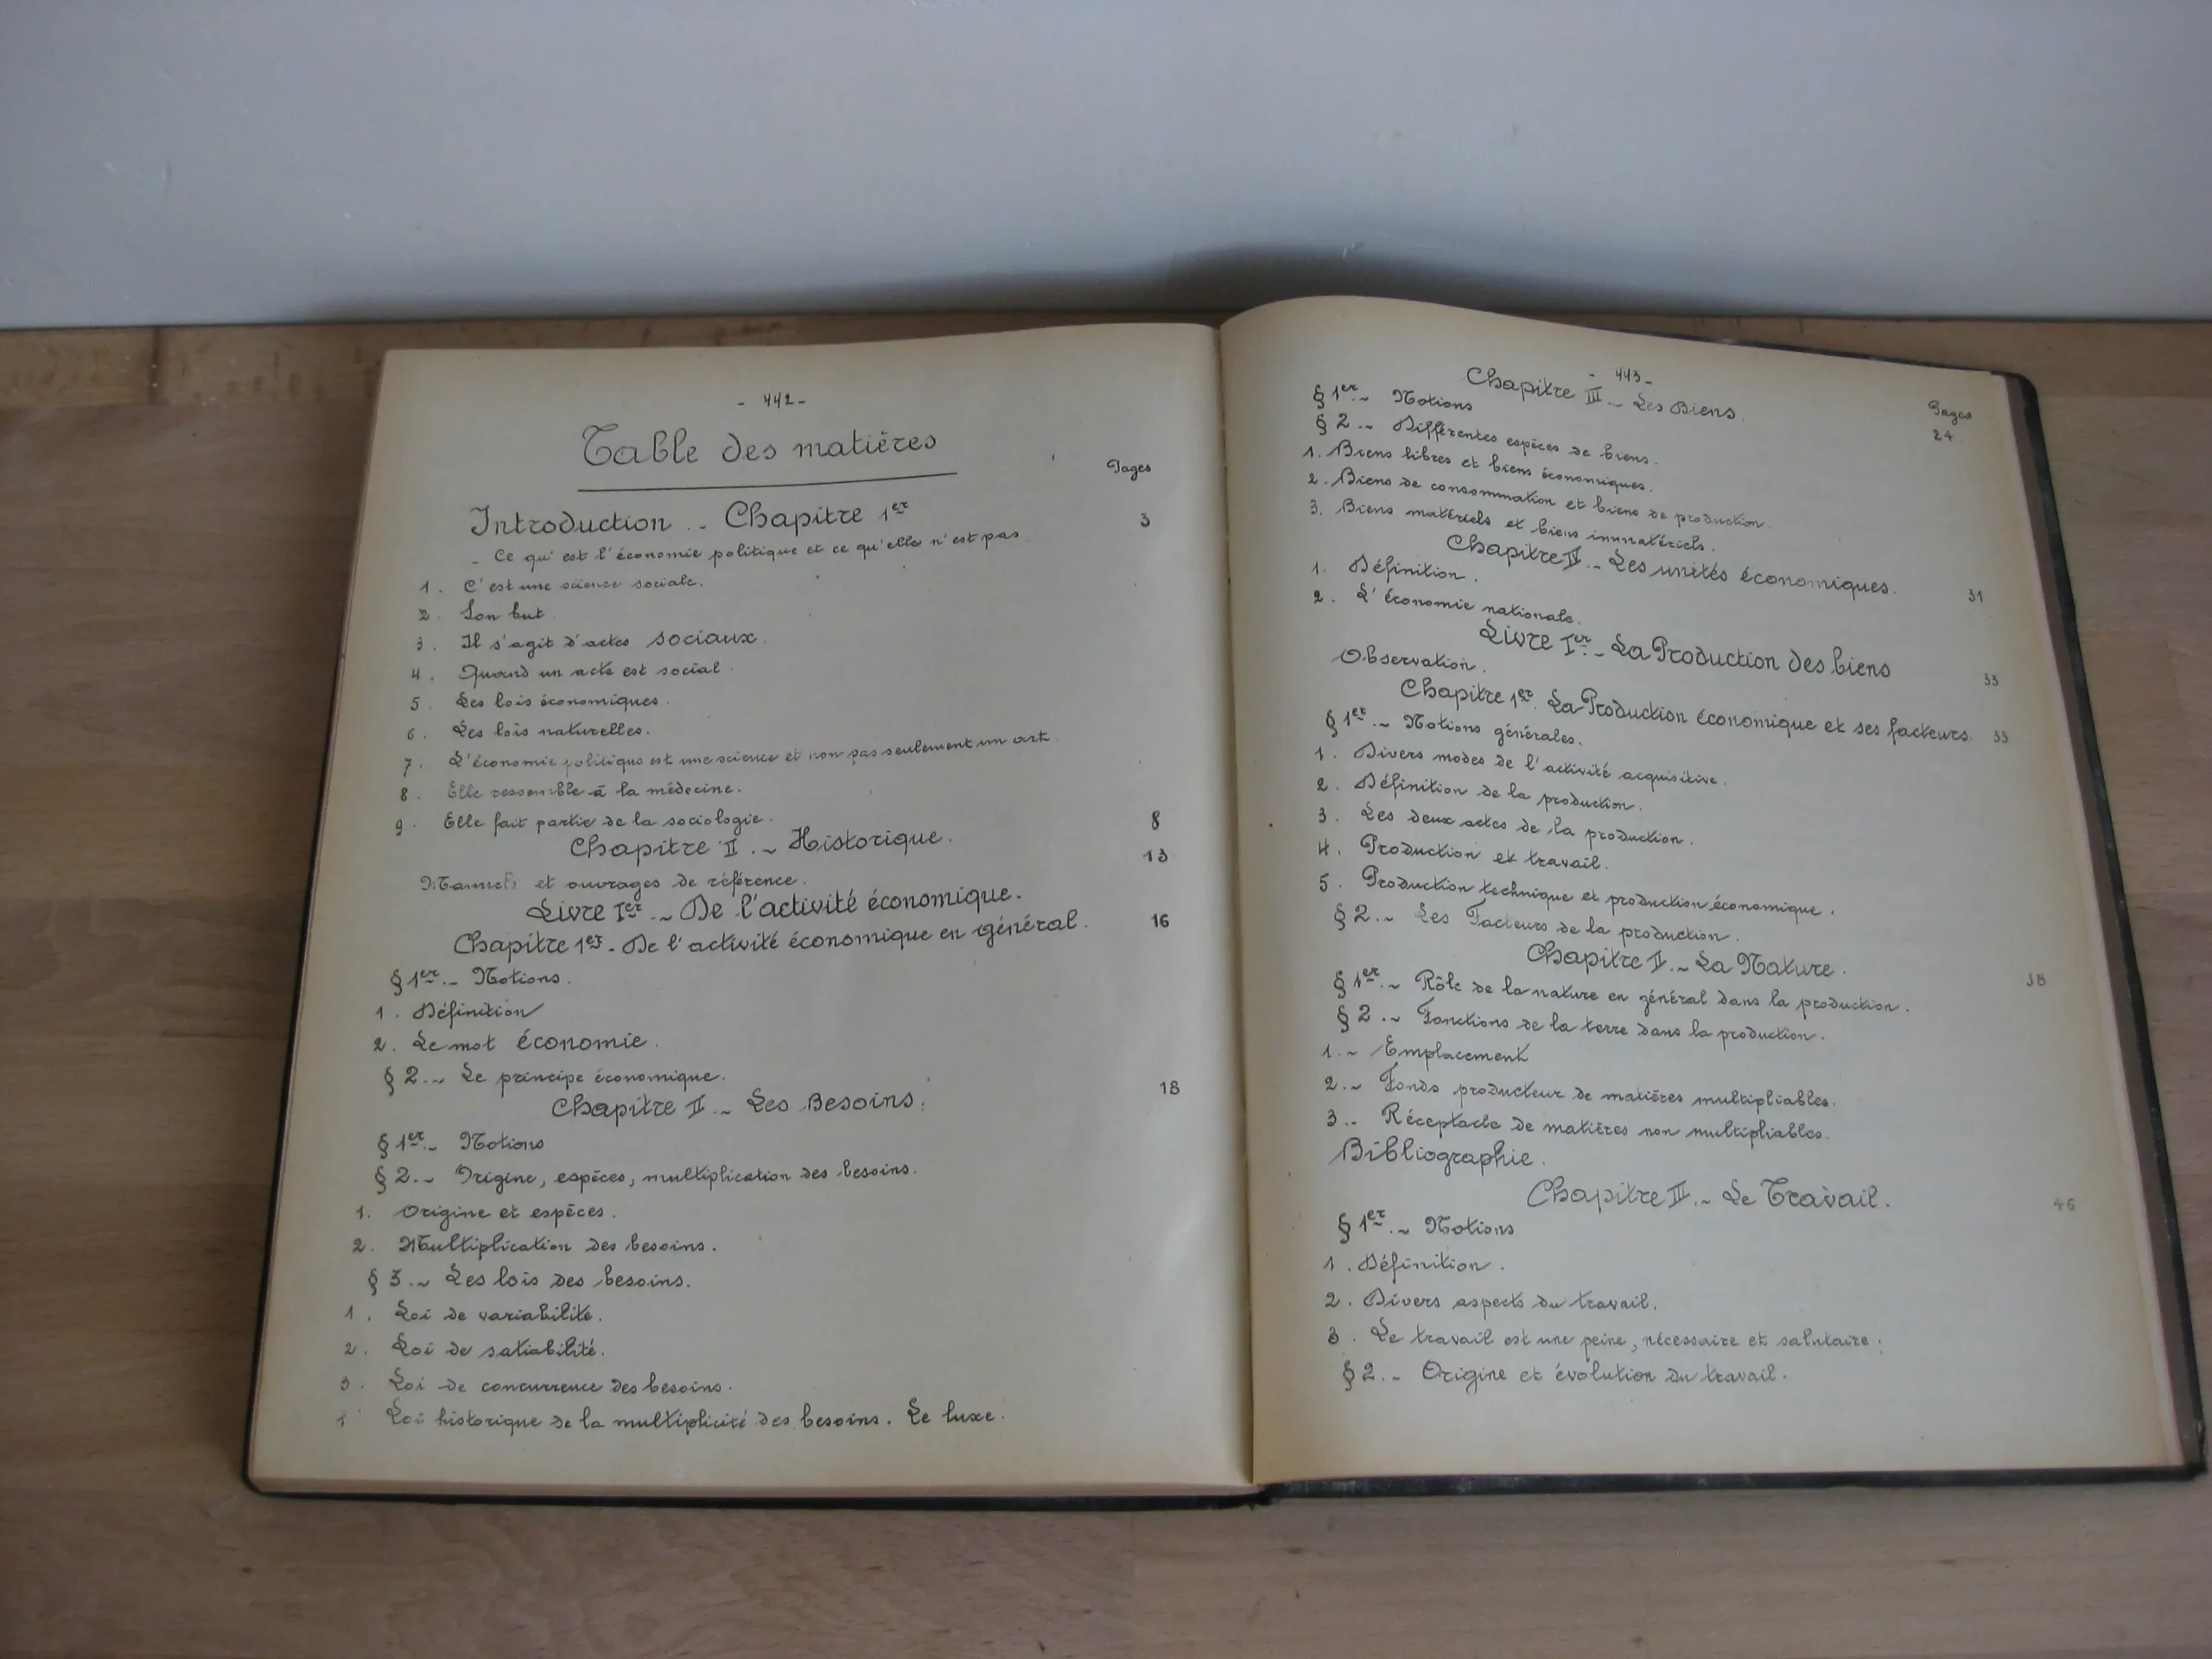 - 442 -
Table des matières
Pages
Introduction .- Chapitre 1er 3
- Ce qu'est l'économie politique et ce qu'elle n'est pas
1. C'est une science sociale.
2. Son but
3. Il s'agit d'actes sociaux.
4. Quand un acte est social.
5. Les lois économiques.
6. Les lois naturelles.
7. L'économie politique est une science et non pas seulement un art.
8. Elle ressemble à la médecine.
9. Elle fait partie de la sociologie.
Chapitre II.- Historique. 8
Manuels et ouvrages de référence. 13
Livre Ier.- De l'activité économique.
Chapitre 1er.- De l'activité économique en général. 16
§ 1er.- Notions.
1. Définition
2. Le mot économie.
§ 2.- Le principe économique.
Chapitre II.- Les Besoins. 18
§ 1er.- Notions
§ 2.- Origine, espèces, multiplication des besoins.
1. Origine et espèces.
2. Multiplication des besoins.
§ 3.- Les lois des besoins.
1. Loi de variabilité.
2. Loi de satiabilité.
3. Loi de concurrence des besoins.
Loi historique de la multiplicité des besoins. Le luxe.
- 443 -
Chapitre III.- Les Biens.
Pages
§ 1er.- Notions 24
§ 2.- Différentes espèces de biens.
1. Biens libres et biens économiques.
2. Biens de consommation et biens de production.
3. Biens matériels et biens immatériels.
Chapitre IV.- Les unités économiques. 31
1. Définition.
2. L'économie nationale.
Livre Ier.- La Production des biens 33
Observation.
Chapitre 1er. La Production économique et ses facteurs. 33
§ 1er.- Notions générales.
1. Divers modes de l'activité acquisitive.
2. Définition de la production.
3. Les deux actes de la production.
4. Production et travail.
5. Production technique et production économique.
§ 2.- Les Facteurs de la production.
Chapitre II.- La Nature. 38
§ 1er.- Rôle de la nature en général dans la production.
§ 2.- Fonctions de la terre dans la production.
1.- Emplacement
2.- Fonds producteur de matières multipliables.
3.- Réceptacle de matières non multipliables.
Bibliographie.
Chapitre III.- Le Travail. 46
§ 1er.- Notions
1. Définition.
2. Divers aspects du travail.
3. Le travail est une peine, nécessaire et salutaire.
§ 2.- Origine et évolution du travail.